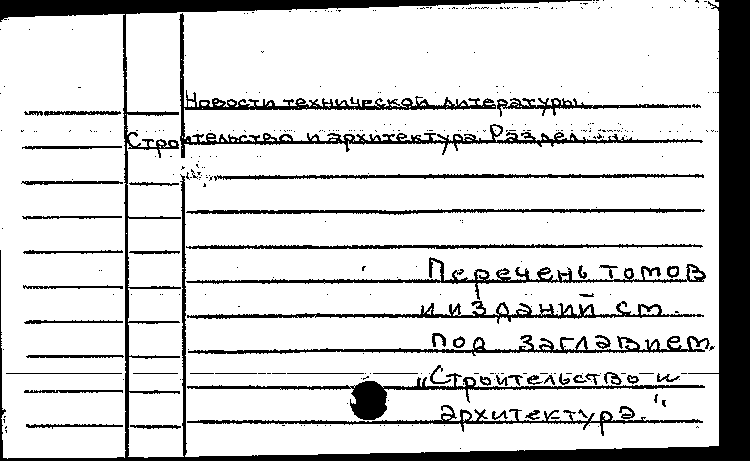 Новости технической литературы.
Строительство и архитектура. Раздел....
Перечень томов
и изданий см.
под заглавием
„Строительство и
архитектура.“